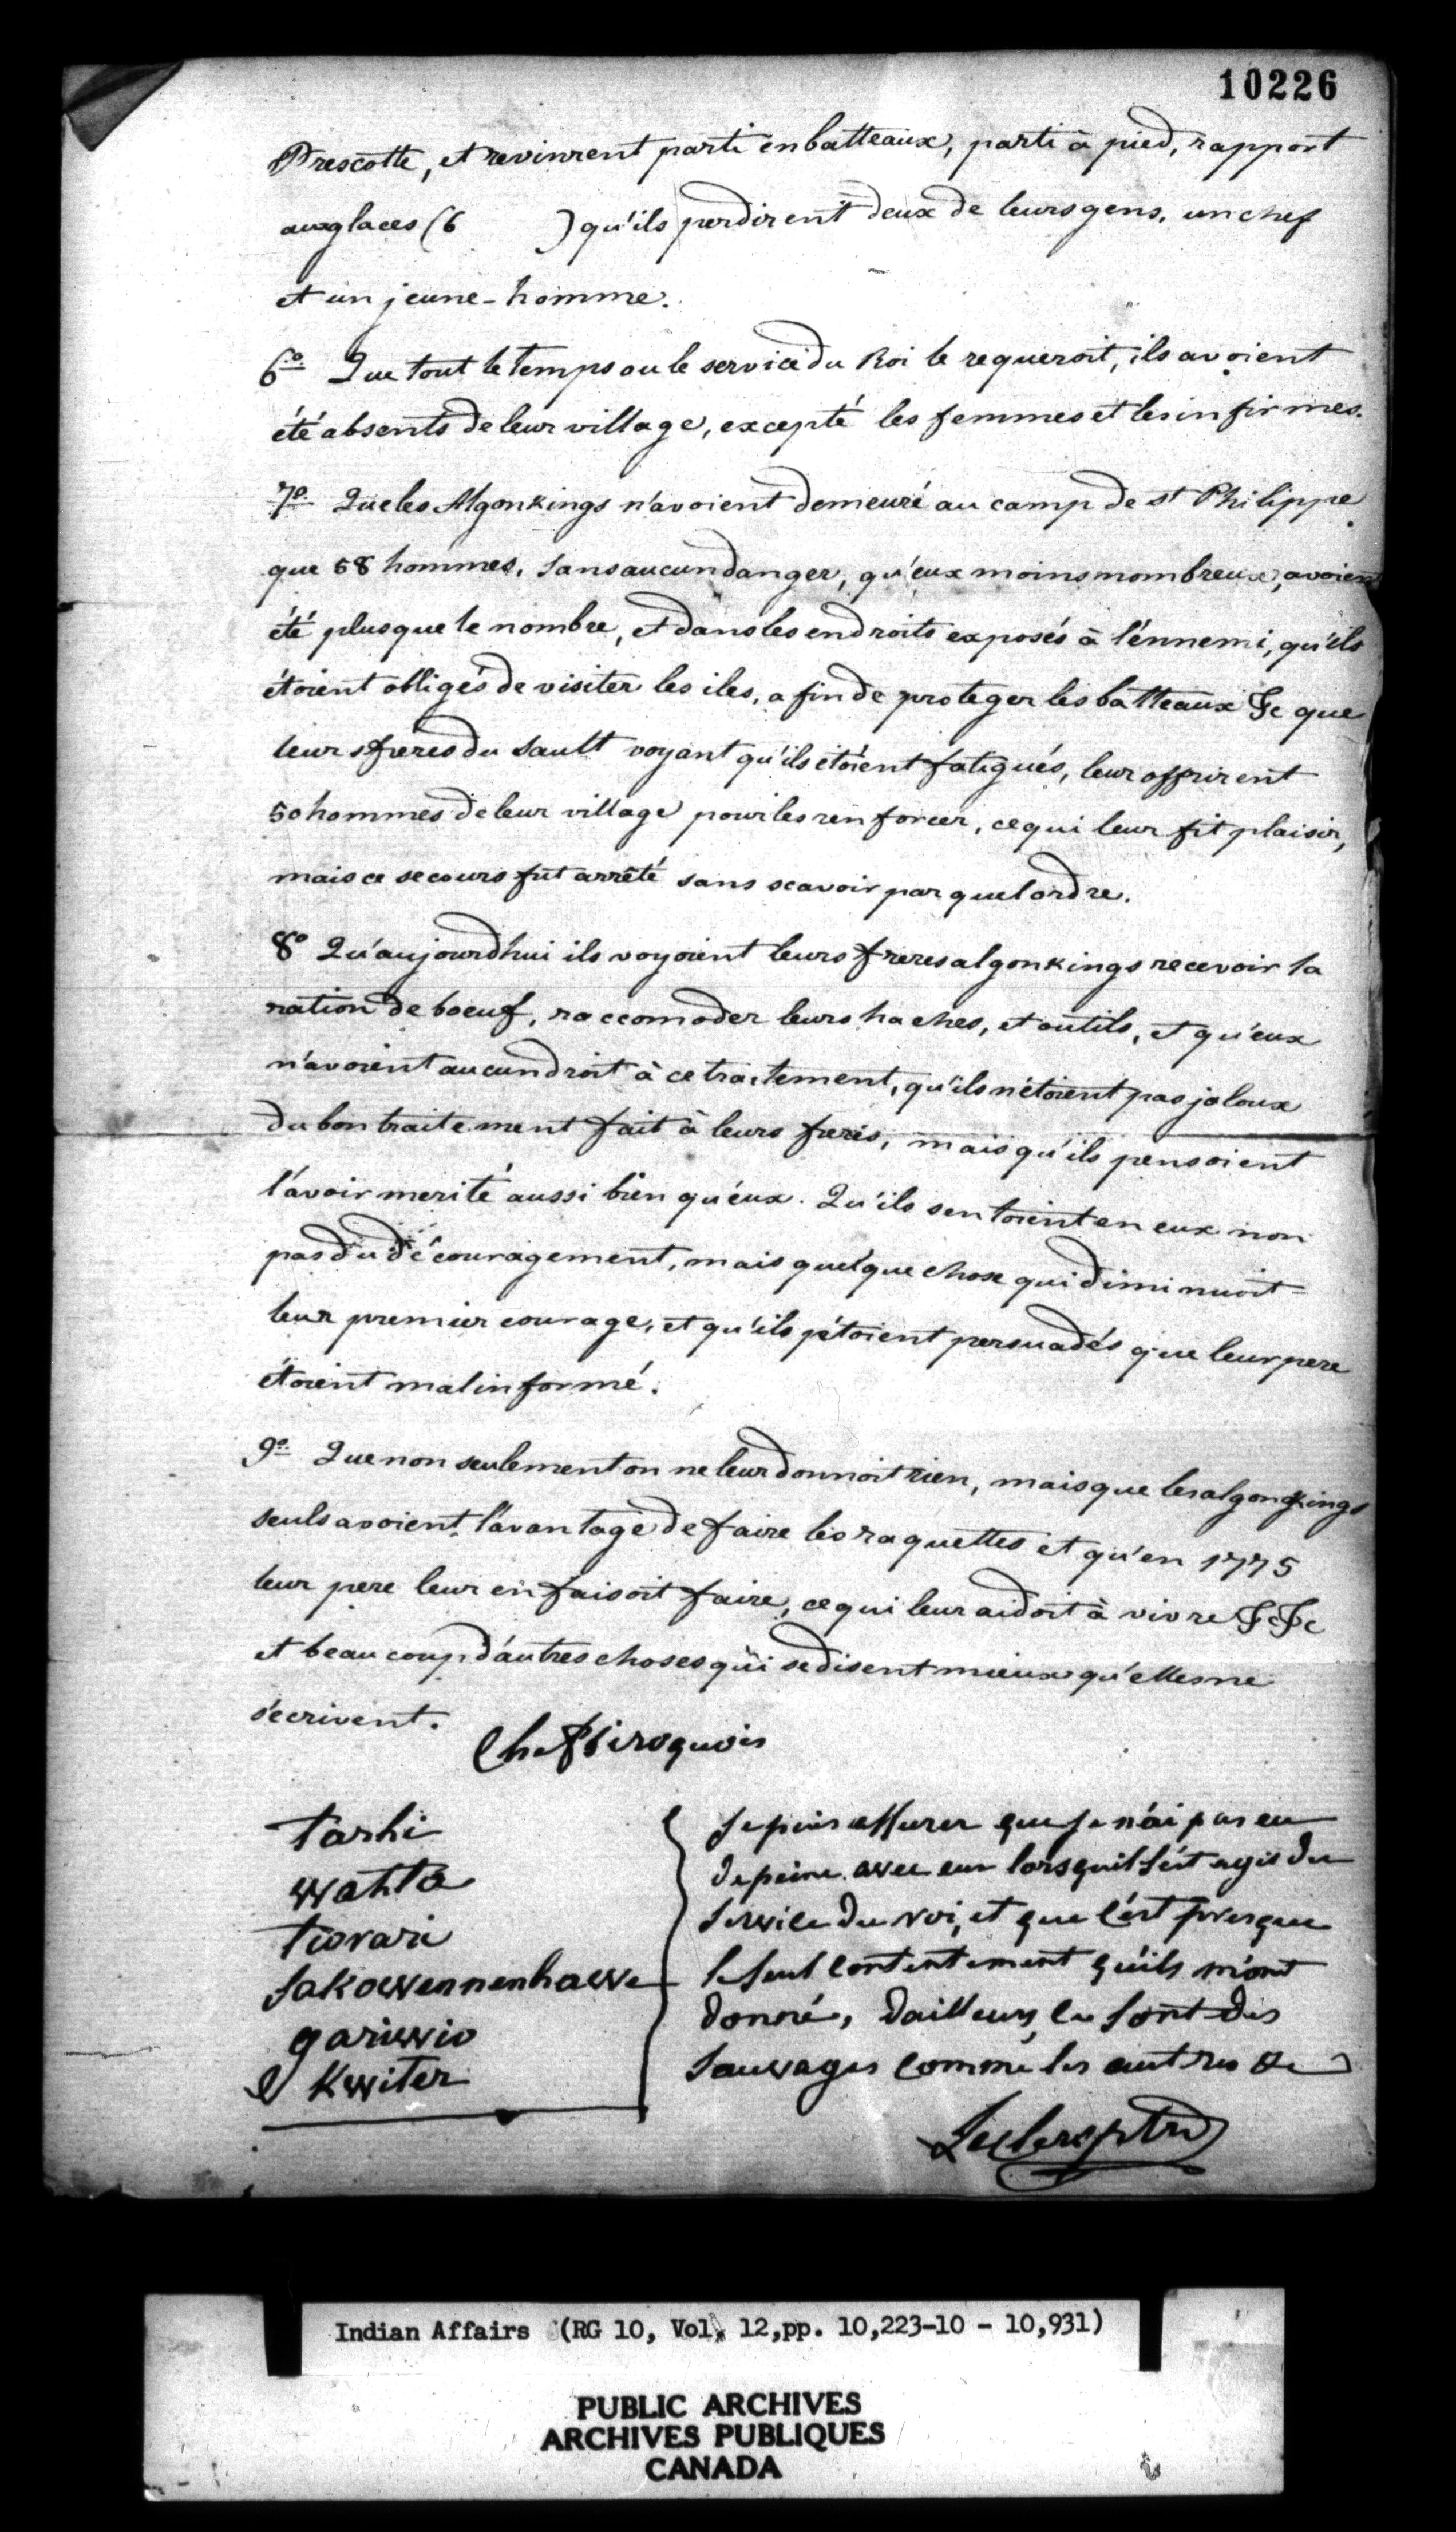 10226
Prescotte, et revinrent parti en batteaux, parti à pied, rapport
aux glaces (6 ) qu'ils perdirent deux de leurs gens, un chef
et un jeune-homme.
6º Que tout le temps ou le service du Roi le requeroit, ils avoient
été absents de leur village, excepté les femmes et les infirmes.
7º Que les Algonkings n'avoient demeuré au camp de st Philippe
que 58 hommes, sans aucun danger, qu'eux moins nombreux, avoient
été plus que le nombre, et dans les endroits exposés à l'énnemi, qu'ils
étoient obligés de visiter les iles, a fin de proteger les batteaux &c que
leurs freres du Sault voyant qu'ils étoient fatigués, leur offrirent
50 hommes de leur village pour les renforcer, ce qui leur fit plaisir,
mais ce secours fut arrêté sans scavoir par quel ordre.
8º Qu'aujourd'hui ils voyoient leurs freres algonkings recevoir la
ration de boeuf, raccomoder leurs haches, et outils, et qu'eux
n'avoient aucun droit à ce traitement, qu'ils n'étoient pas jaloux
du bon traitement fait à leurs freres, mais qu'ils pensoient
l'avoir merité aussi bien qu'eux. Qu'ils sentoient en eux non
pas du découragement, mais quelque chose qui diminuoit
leur premier courage, et qu'ils étoient persuadés que leur pere
étoient mal informé.
9º Que non seulement on ne leur donnoit rien, mais que les algonkings
seuls avoient l'avantage de faire les raquettes et qu'en 1775
leur pere leur en faisoit faire, ce qui leur aidoit à vivre &c &c
et beaucoup d'autres choses qui se disent mieux qu'elles ne
s'ecrivent.
Chefs iroquois
tarhi
wahta
tiorari
Sakowennenhawe
gariwio
Kwiter
Je puis assurer que je n'ai pas eu
de peine avec eux lorsquil s'est agis du
service du roi, et que c'est presque
le seul contentement qu'ils m'ont
donné, dailleurs, ce sont des
sauvages comme les autres &c
Leclerc ptre
Indian Affairs (RG 10, Vol. 12, pp. 10,223-10 - 10,931)
PUBLIC ARCHIVES
ARCHIVES PUBLIQUES
CANADA